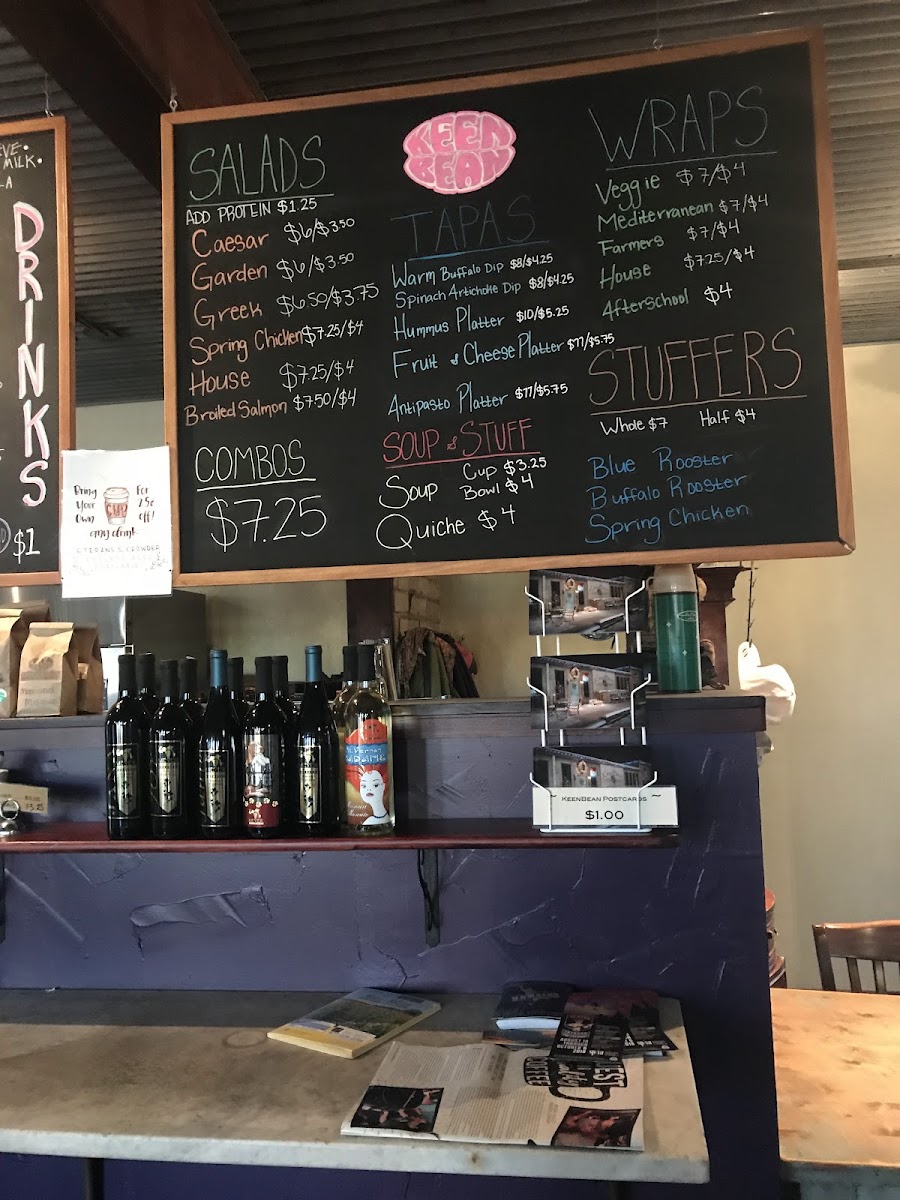 MILK
DRINKS
$1
Bring Your Own CUP For 25¢ off! any drink
SALADS
ADD PROTEIN $1.25
Caesar $6/$3.50
Garden $6/$3.50
Greek $6.50/$3.75
Spring Chicken $7.25/$4
House $7.25/$4
Broiled Salmon $7.50/$4
COMBOS
$7.25
KEEN
BEAN
TAPAS
Warm Buffalo Dip $8/$4.25
Spinach Artichoke Dip $8/$4.25
Hummus Platter $10/$5.25
Fruit & Cheese Platter $11/$5.75
Antipasto Platter $11/$5.75
SOUP & STUFF
Soup Cup $3.25
Bowl $4
Quiche $4
WRAPS
Veggie $7/$4
Mediterranean $7/$4
Farmers $7/$4
House $7.25/$4
Afterschool $4
STUFFERS
Whole $7 Half $4
Blue Rooster
Buffalo Rooster
Spring Chicken
KEENBEAN POSTCARDS
$1.00
COFFEE